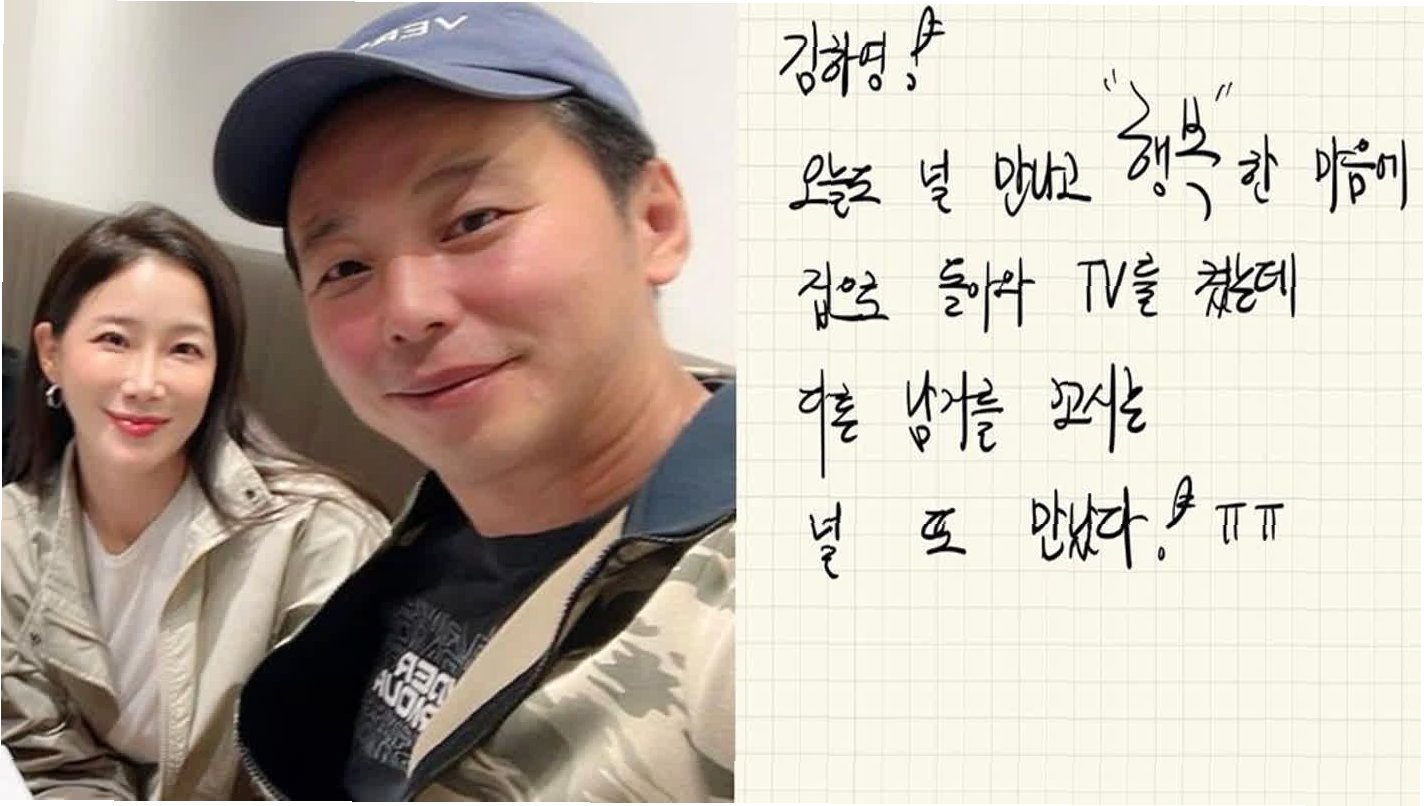 김하영!
오늘도 널 만나고 "행복"한 마음에
집으로 돌아와 TV를 켰는데
다른 남자를 꼬시는
널 또 만났다! ㅠㅠ